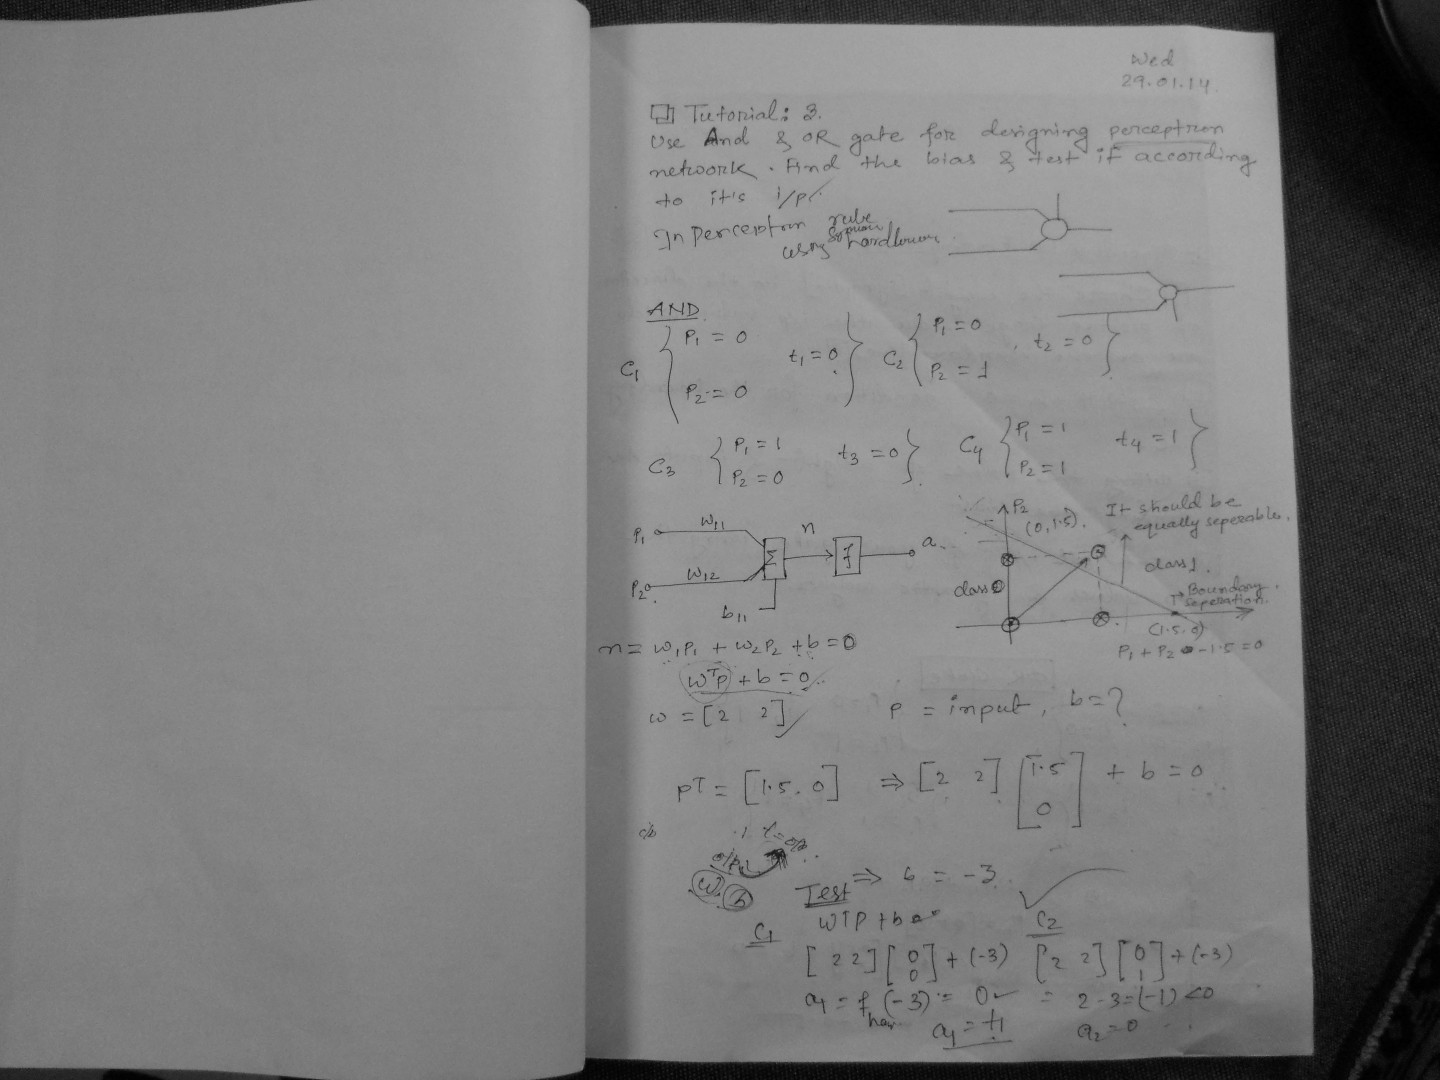 Wed
29.01.14.
Tutorial: 3.
Use And & OR gate for designing perceptron
network. Find the bias & test it according
to it's i/p.
In perceptron rule
using
AND
C1 { P1 = 0 P2 = 0 t1 = 0 } C2 { P1 = 0 P2 = 1 , t2 = 0 }
C3 { P1 = 1 P2 = 0 t3 = 0 } C4 { P1 = 1 P2 = 1 t4 = 1 }
P1 w11 n a
P2 w12 Σ f
b11
P2 (0,1.5). It should be
equally seperable.
class 1.
class 0
Boundary
seperation.
(1.5,0)
P1 + P2 -1.5 = 0
n = w1P1 + w2P2 + b = 0
wTp + b = 0
w = [2 2] P = input, b = ?
pT = [1.5, 0] ⇒ [2 2] [1.5 0] + b = 0
w b
⇒ b = -3
Test
WTP + b
C1 C2
[2 2] [0 0] + (-3) [2 2] [0 1] + (-3)
a1 = f (-3) = 0 = 2-3 = (-1) <0
a4 = +1 a2 = 0